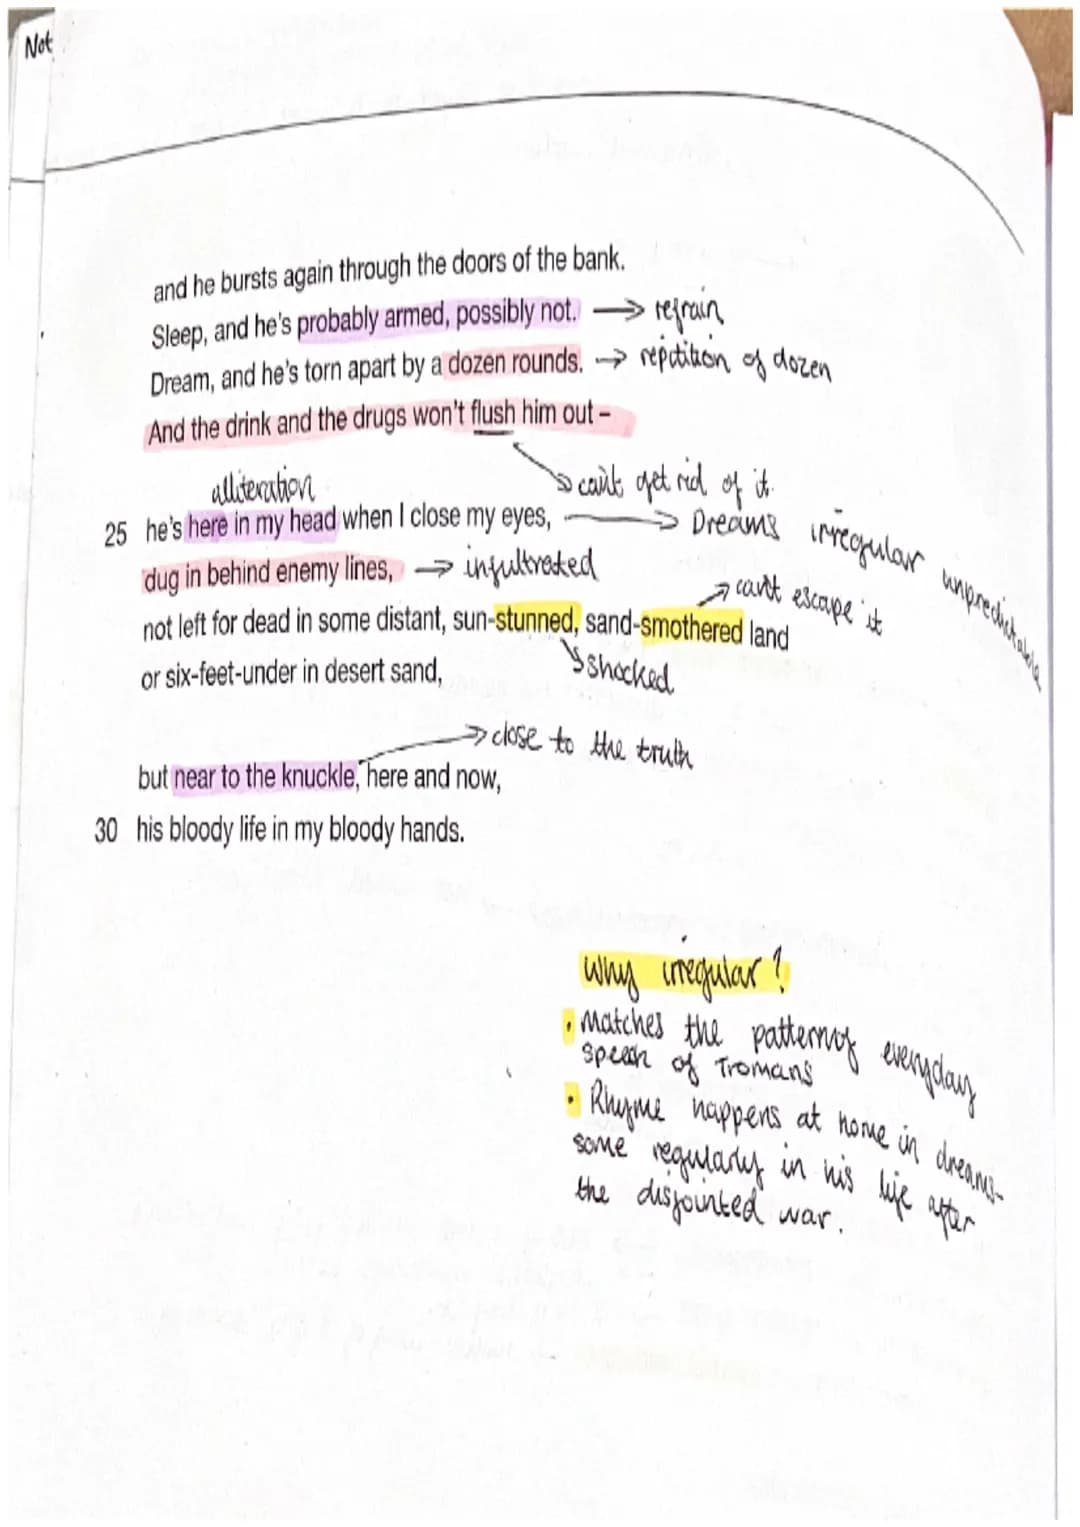 Not
and he bursts again through the doors of the bank.
Sleep, and he's probably armed, possibly not. → refrain
Dream, and he's torn apart by a dozen rounds. → repitition of dozen
And the drink and the drugs won't flush him out –
alliteration
→ can't get rid of it.
25 he's here in my head when I close my eyes, → Dreams irregular unpredictable
dug in behind enemy lines, → infultrated
→ can't escape it
not left for dead in some distant, sun-stunned, sand-smothered land
→ shocked
or six-feet-under in desert sand,
→ close to the truth
but near to the knuckle, here and now,
30 his bloody life in my bloody hands.
Why irregular?
• Matches the pattern of everyday
speech of Tromans
• Rhyme happens at home in dreams-
some regularly in his life after
the disjointed war.